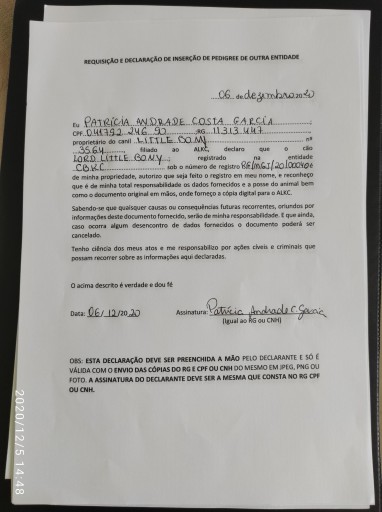 REQUISIÇÃO E DECLARAÇÃO DE INSERÇÃO DE PEDIGREE DE OUTRA ENTIDADE
06 de dezembro 2020
Eu PATRÍCIA ANDRADE COSTA GARCIA
CPF 041792 246 90 RG 11 313 447
proprietário do canil LITTLE BONY nº
3564 filiado ao ALKC, declaro que o cão
LORD LITTLE BONY registrado na entidade
CBKC sob o número de registro
de minha propriedade, autorizo que seja feito o registro em meu nome, e reconheço
que é de minha total responsabilidade os dados fornecidos e a posse do animal bem
como o documento original em mãos, onde forneço a cópia digital para o ALKC.
Sabendo-se que quaisquer causas ou consequências futuras recorrentes, oriundos por
informações deste documento fornecido, serão de minha responsabilidade. E que ainda,
caso ocorra algum desencontro de dados fornecidos o documento poderá ser
cancelado.
Tenho ciência dos meus atos e me responsabilizo por ações cíveis e criminais que
possam recorrer sobre as informações aqui declaradas.
O acima descrito é verdade e dou fé
Data: 06/12/2020 Assinatura: Patrícia Andrade C. Garcia
(Igual ao RG ou CNH)
OBS: ESTA DECLARAÇÃO DEVE SER PREENCHIDA A MÃO PELO DECLARANTE E SÓ É
VÁLIDA COM O ENVIO DAS CÓPIAS DO RG E CPF OU CNH DO MESMO EM JPEG, PNG OU
FOTO. A ASSINATURA DO DECLARANTE DEVE SER A MESMA QUE CONSTA NO RG CPF
OU CNH.
2020/12/5 14:48